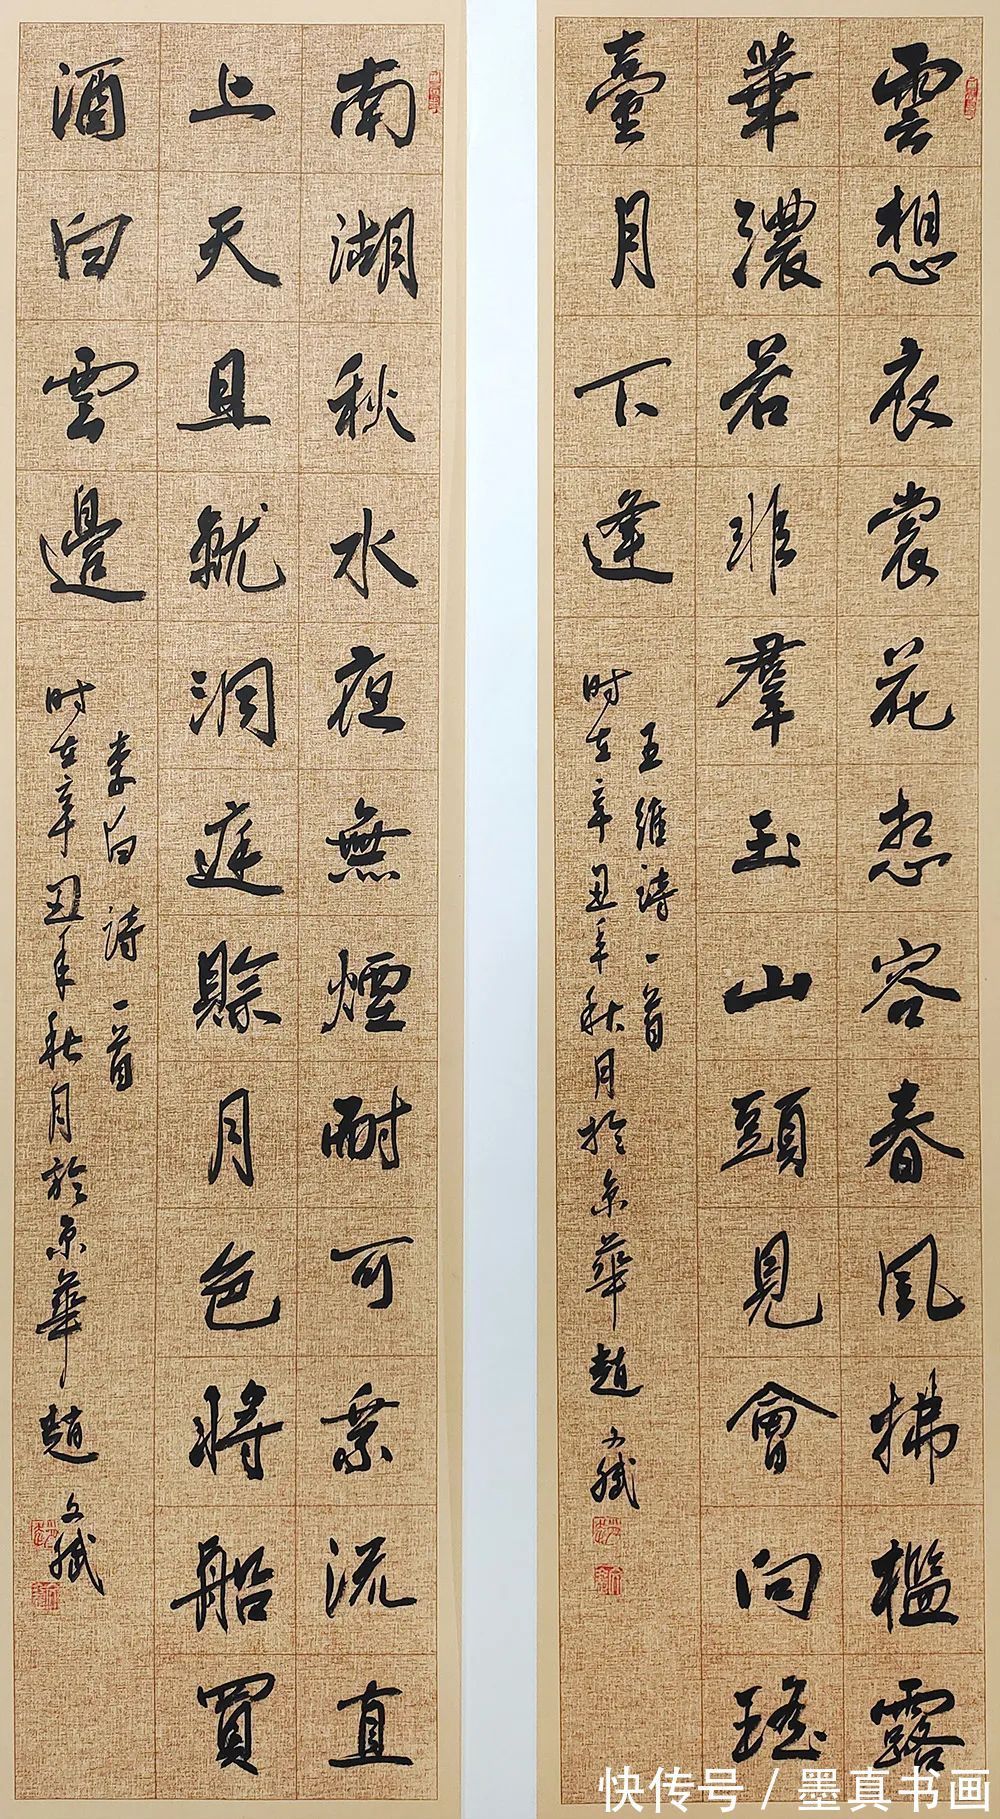 雲想衣裳花想容春風拂檻露
華濃若非羣玉山頭見會向瑤
臺月下逢
王維詩一首
时在辛丑年秋月於京華趙文
南湖秋水夜無煙耐可乘流直
上天且就洞庭賒月色將船買
酒白雲邊
李白詩一首
时在辛丑年秋月於京華趙文
快传号 / 墨真书画